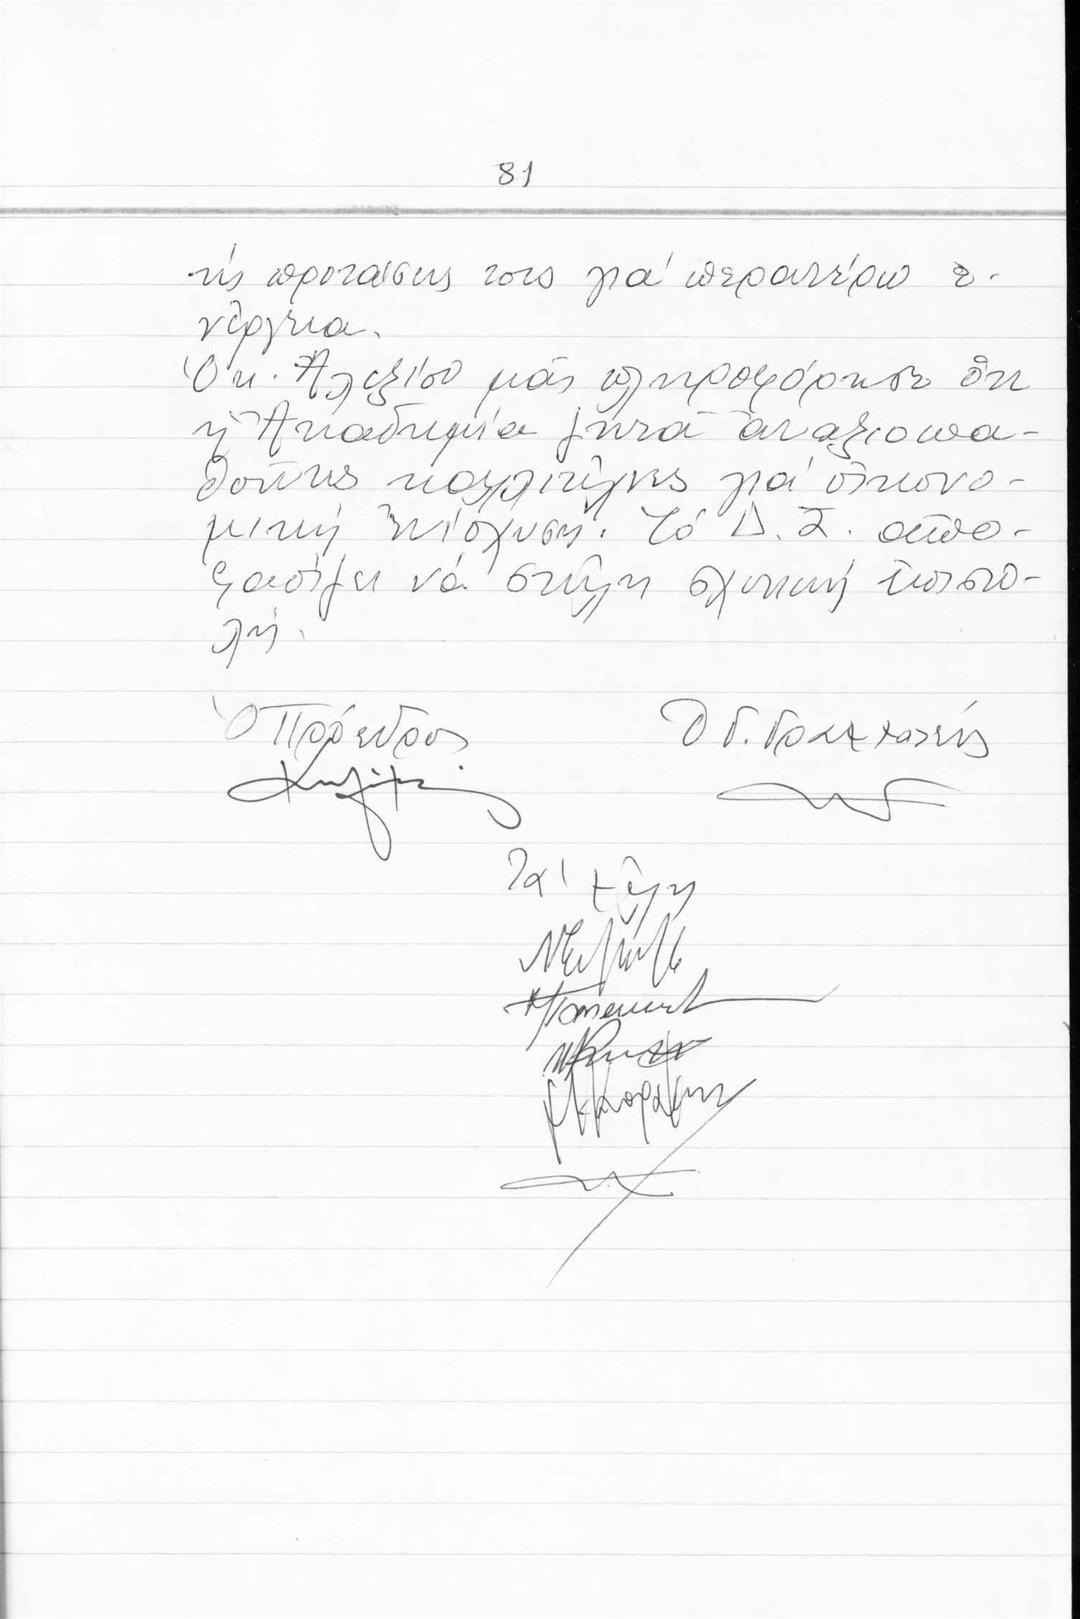 81
τίς προτάσεις τους γιά περαιτέρω ἐ-
νέργεια.
Ὁ κ. Ἀλεξίου μᾶς πληροφόρησε ὅτι
ἡ Ἀκαδημία ζητᾶ ἀναξιοπα-
θοῦντες καλλιτέχνες γιά οἰκονο-
μική ἐνίσχυση. Τό Δ.Σ. ἀπο-
φασίζει νά στείλη σχετική ἐπιστο-
λή.
Ὁ Πρόεδρος
Ὁ Γ. Γραμματεύς
Τά μέλη